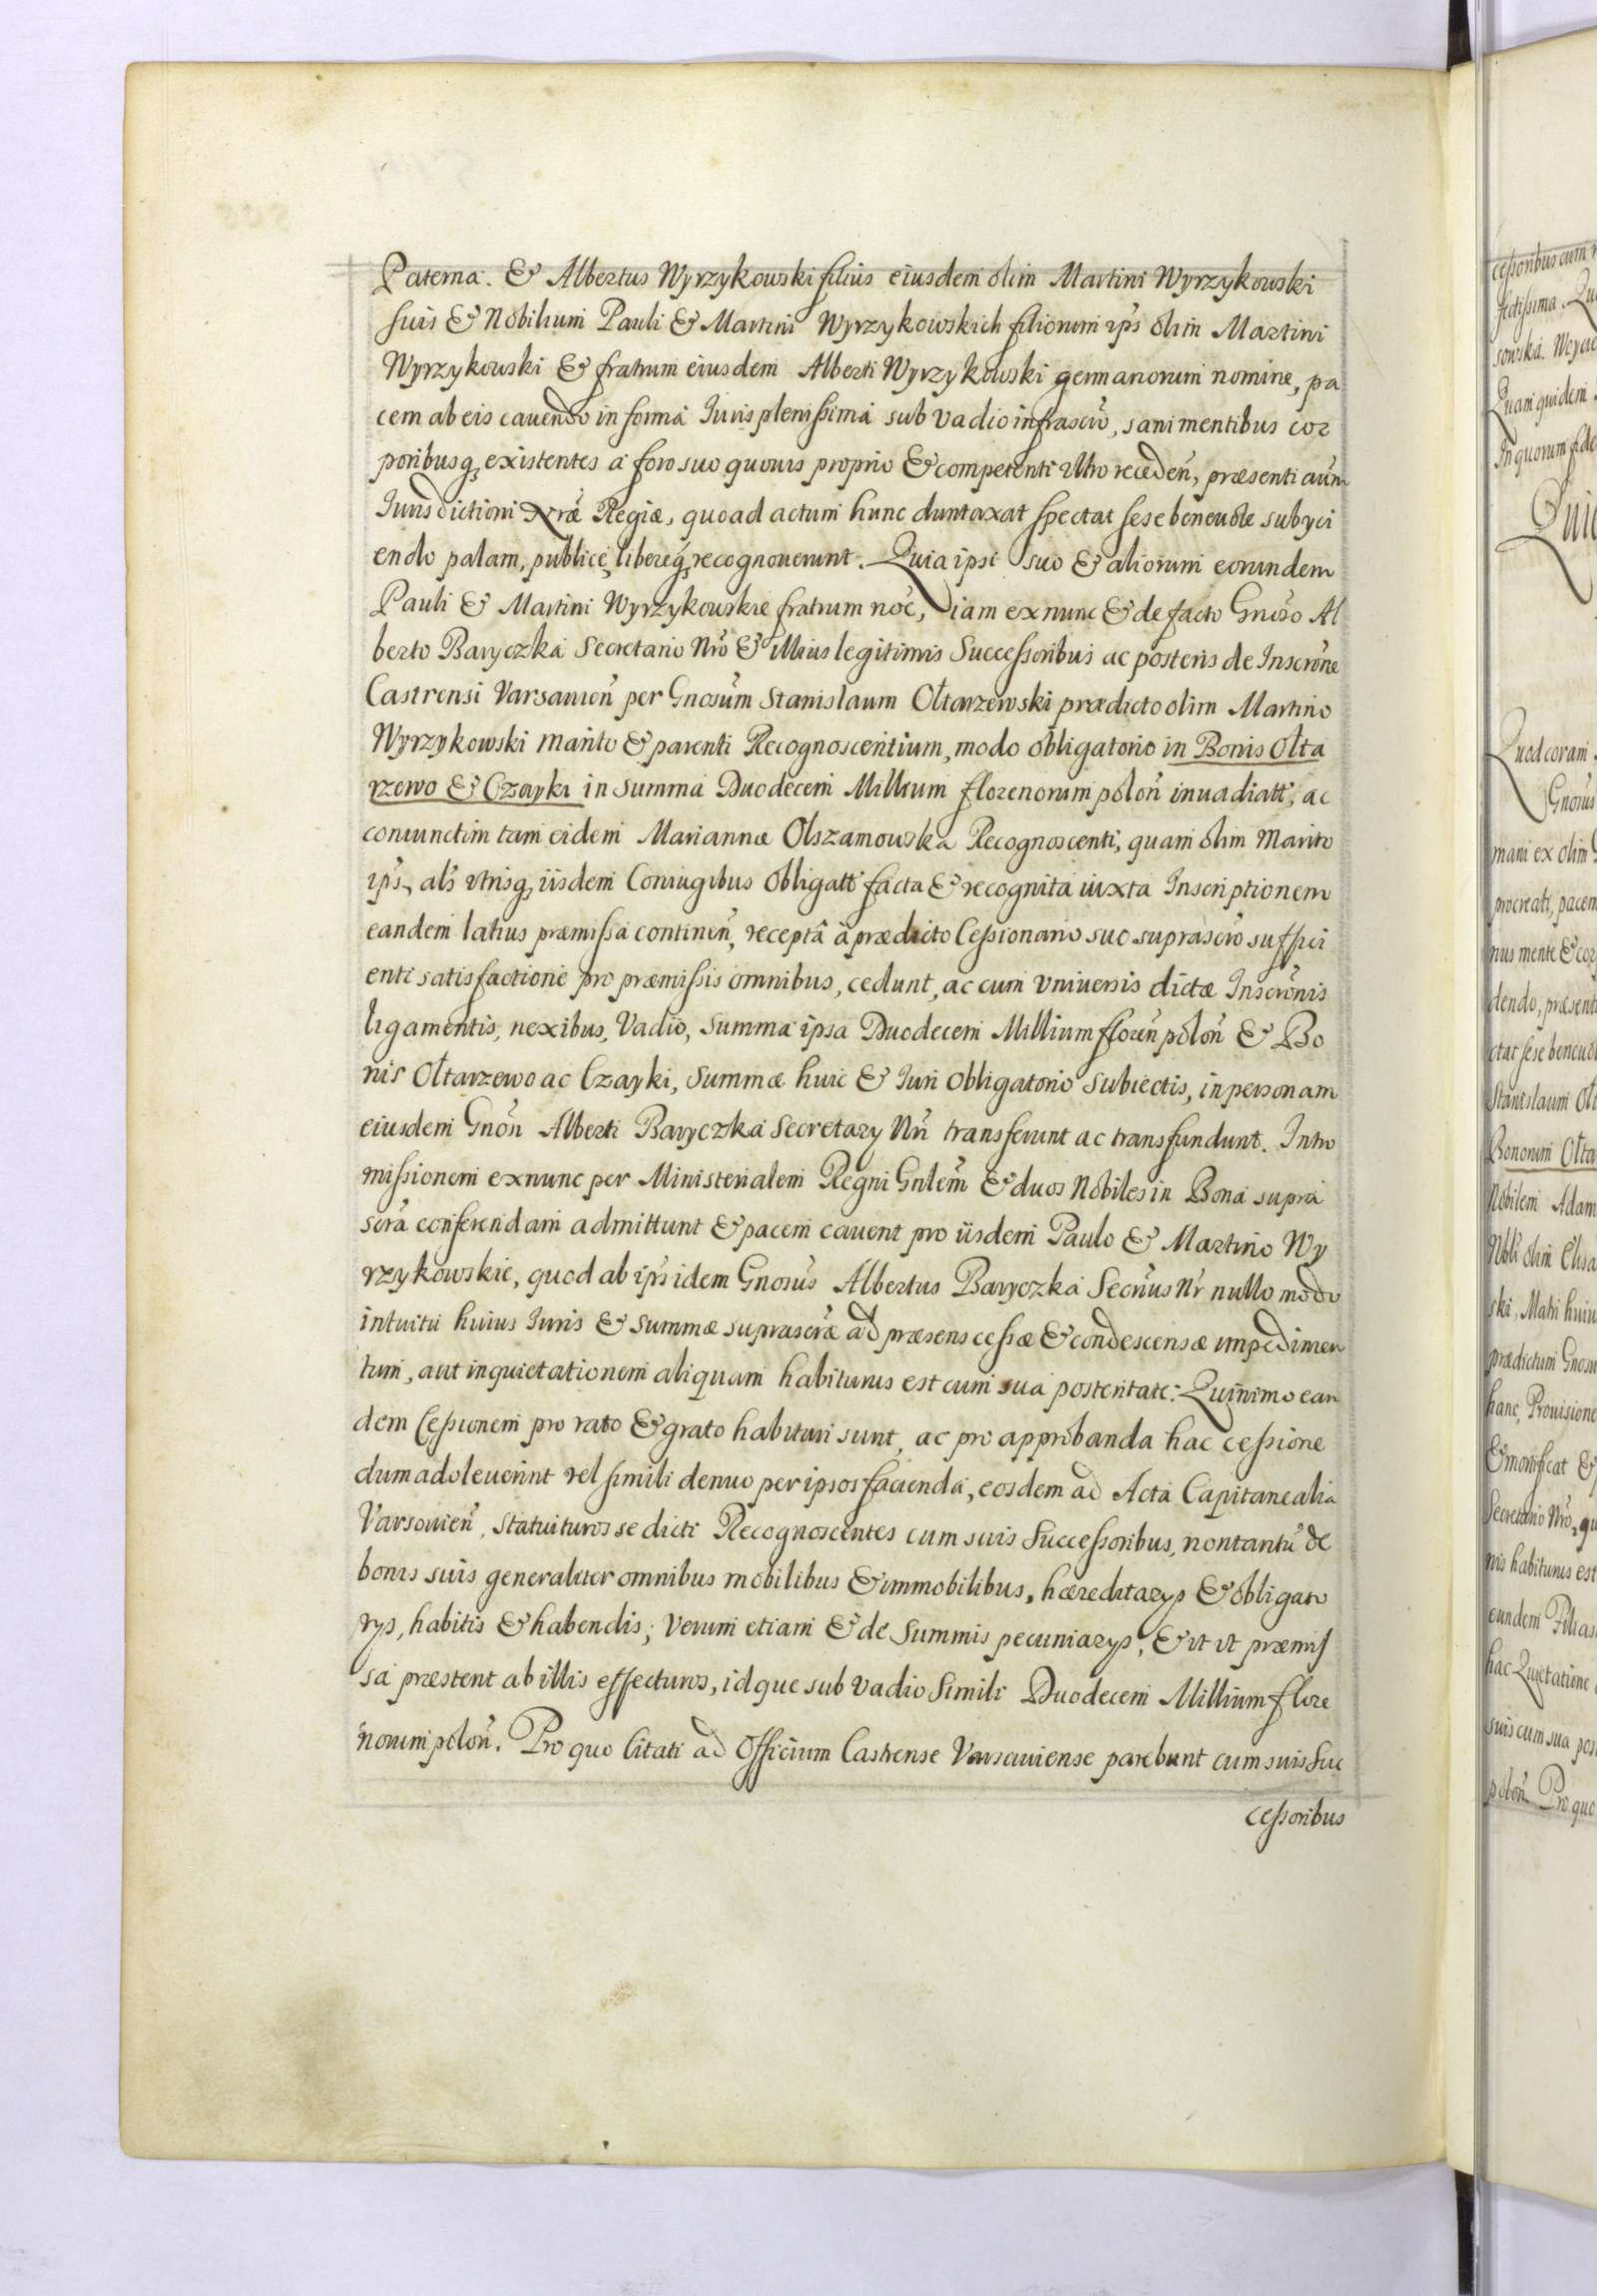 Paterna. & Albertus Wyrzykowski filius eiusdem olim Martini Wyrzykowski
suis & Nobilium Pauli & Martini Wyrzykowskich filiorum ips̃ olim Martini
Wyrzykowski & fratrum eiusdem Alberti Wyrzykowski germanorum nomine, pa
cem ab eis cauendo in forma Iuris plenissima sub vadio infrascrõ, sani mentibus cor
poribusq; existentes a foro suo quouis proprio & competenti vltro receden̄, præsenti aũm
Iurisdictioni Nrã̃e Regiæ, quoad actum hunc duntaxat spectat sese beneuole subyci
endo palam, publicè, libereq; recognouerunt. Quia ipsi suo & aliorum eorundem
Pauli & Martini Wyrzykowskie fratrum noĩe, iam ex nunc & de facto Gnõso Al
berto Baryczka Secretario Nrõ & illius legitimis Successoribus ac posteris de Inscrõne
Castrensi Varsauien̄ per Gnosũm Stanislaum Ołtarzewski prædicto olim Martino
Wyrzykowski marito & parenti Recognoscentium, modo obligatorio in Bonis Ołta
rzewo & Czayki in summa Duodecem Millium florenorum polon̄ inuadiatt̃, ac
coniunctim tam eidem Mariannæ Olszamowska Recognoscenti, quam olim Marito
ips̃, als̃ vtrisq; iisdem Coniugibus obligatt̃ facta & recognita iuxta Inscriptionem
eandem latius præmissa continen̄, receptâ à prædicto Cessionario suo suprascrõ suffici
enti satisfactione pro præmissis omnibus, cedunt, ac cum vniuersis dictæ Inscrõnis
ligamentis, nexibus, Vadio, summa ipsa Duodecem Millium floren̄ polon̄ & Bo
nis Ołtarzewo ac Czayki, summæ huic & Iuri obligatorio subiectis, in personam
eiusdem Gnõsi Alberti Baryczka Secretary Nrĩ transferunt ac transfundunt. Intro
missionem ex nunc per Ministerialem Regni Gnlẽm & duos Nobiles in Bona supra
scrã conferendam admittunt & pacem cauent pro iisdem Paulo & Martino Wy
rzykowskie, quod ab ips̃ idem Gnosũs Albertus Baryczka Secrĩus Nr̃ nullo modo
intuitu huius Iuris & summæ suprascrã̃e ad præsens cessæ & condescensæ impedimen
tum, aut inquietationem aliquam habiturus est cum sua posteritate. Quinimo ean
dem Cessionem pro rato & grato habituri sunt, ac pro approbanda hac cessione
dum adoleuerint vel simili denuo per ipsos facienda, eosdem ad Acta Capitanealia
Varsouien̄, statuituros se dicti Recognoscentes cum suis Successoribus, non tantũ de
bonis suis generaliter omnibus mobilibus & immobilibus, hæreditarys & obligato
rys, habitis & habendis; Verum etiam & de summis pecuniarys, & vt vt præmis
sa præstent ab illis effecturos, idque sub vadio simili Duodecem Millium flore
norum polon̄. Pro quo Citati ad Officium Castrense Varsauiense parebunt cum suis Suc
cessoribus